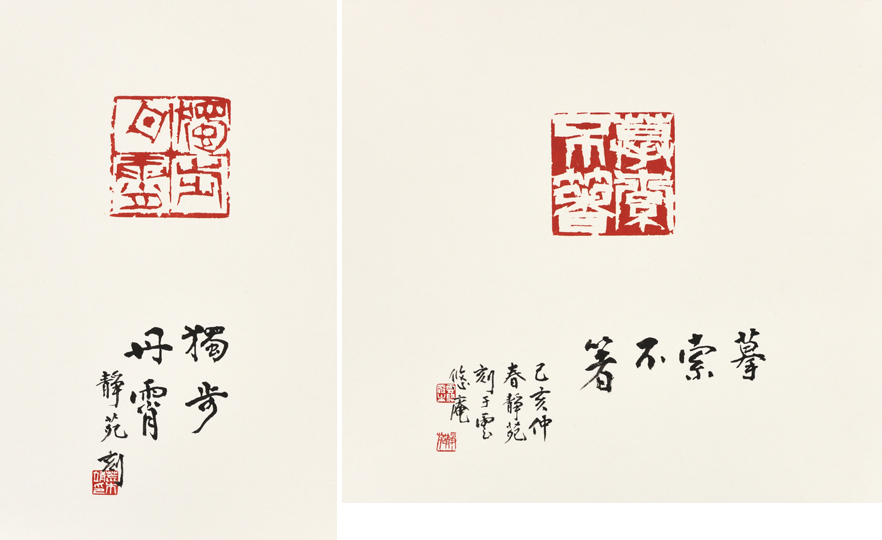 獨步
丹霄
獨步
丹霄
靜苑刻
摹索
不著
摹索不箸
己亥仲
春靜苑
刻于雲
悠庵